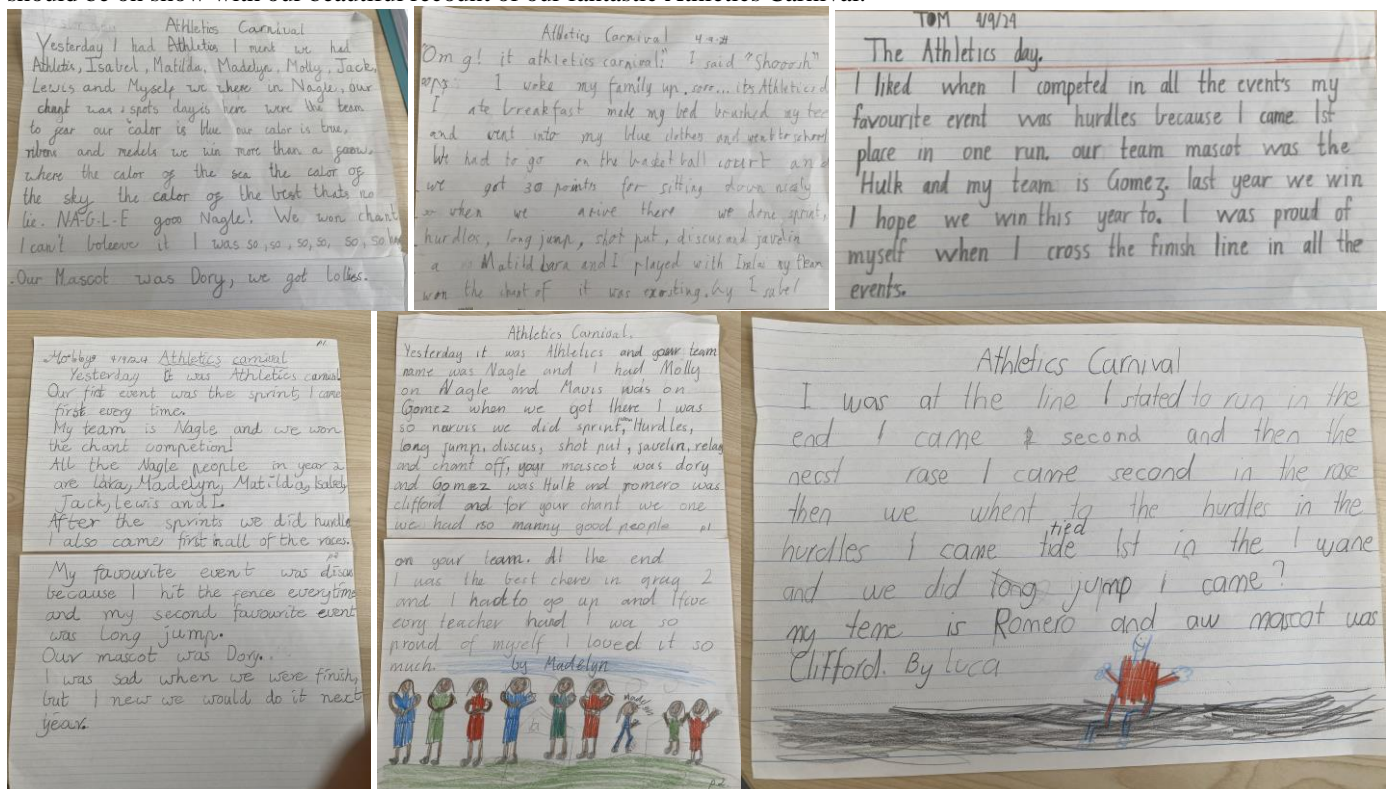 should be on show with our beautiful recount of our fantastic Athletics Carnival.
Athletics Carnival
Yesterday I had Athletics I ment we had
Athletis, Isabel, Matilda, Madelyn, Molly, Jack,
Lewis and Myself we where in Nagle, our
chant was, spots day is here were the team
to fear our calor is blue our calor is true,
ribens and medels we win more than a
where the calor of the sea the calor of
the sky the calor of the best thats no
lie. NA-G-L-E gooo Nagle! We won chant
I can't boleeve it I was so, so, so, so, so, so
Our Mascot was Dory, we got Lollies.
Athletics Carnival
"Omg! it athletics carnival!" I said "Shooosh"
I woke my family up, its Athletics
I ate breakfast made my bed brushed my
and went into my blue clothes and went to school
We had to go on the basket ball court
we got 30 points for sitting down nicely
when we arive there we done sprint,
hurdles, long jump, shot put, discus and javelin
a Matild and I played with my team
won the chant of it was exosting. by Isabel
TOM 4/9/24
The Athletics day.
I liked when I competed in all the event's my
favourite event was hurdles because I came 1st
place in one run. our team mascot was the
Hulk and my team is Gomez. last year we win
I hope we win this year to. I was proud of
myself when I cross the finish line in all the
events.
p1.
Athletics carnival
Yesterday It was Athletics carnival
Our fist event was the sprint, I came
first every time.
My team is Nagle and we won
the chant competion!
All the Nagle people in year 2
are Lara, Madelyn, Matilda, Isabel,
Jack, lewis and I.
After the sprints we did hurdle
I also came first in all of the races.
My favourite event was disc
because I hit the fence everytime
and my second favourite event
was Long jump.
Our mascot was Dory.
I was sad when we were finish,
but I new we would do it next
year.
Athletics Carnival.
Yesterday it was Athletics and your team
name was Nagle and I had Molly
on Nagle and Mavis was on
Gomez when we got there I was
so narvis we did sprint, Hurdles,
long jump, discus, shot put, javelin, relay
and chant off, your mascot was dory
and Gomez was Hulk and romero was
clifford and for your chant we one
we had so manny good people p1
on your team. At the end
I was the best chere in 2
and I had to go up and
evry teacher hand I wa so
proud of myself I loved it so
much. by Madelyn
Madelyn
p2.
Athletics Carnival
I was at the line I stated to run in the
end I came second and then the
necst rase I came second in the rase
then we whent to the hurdles in the
tied
hurdles I came tide 1st in the I wane
and we did long jump I came?
my teme is Romero and aw mascot was
Clifford. By luca